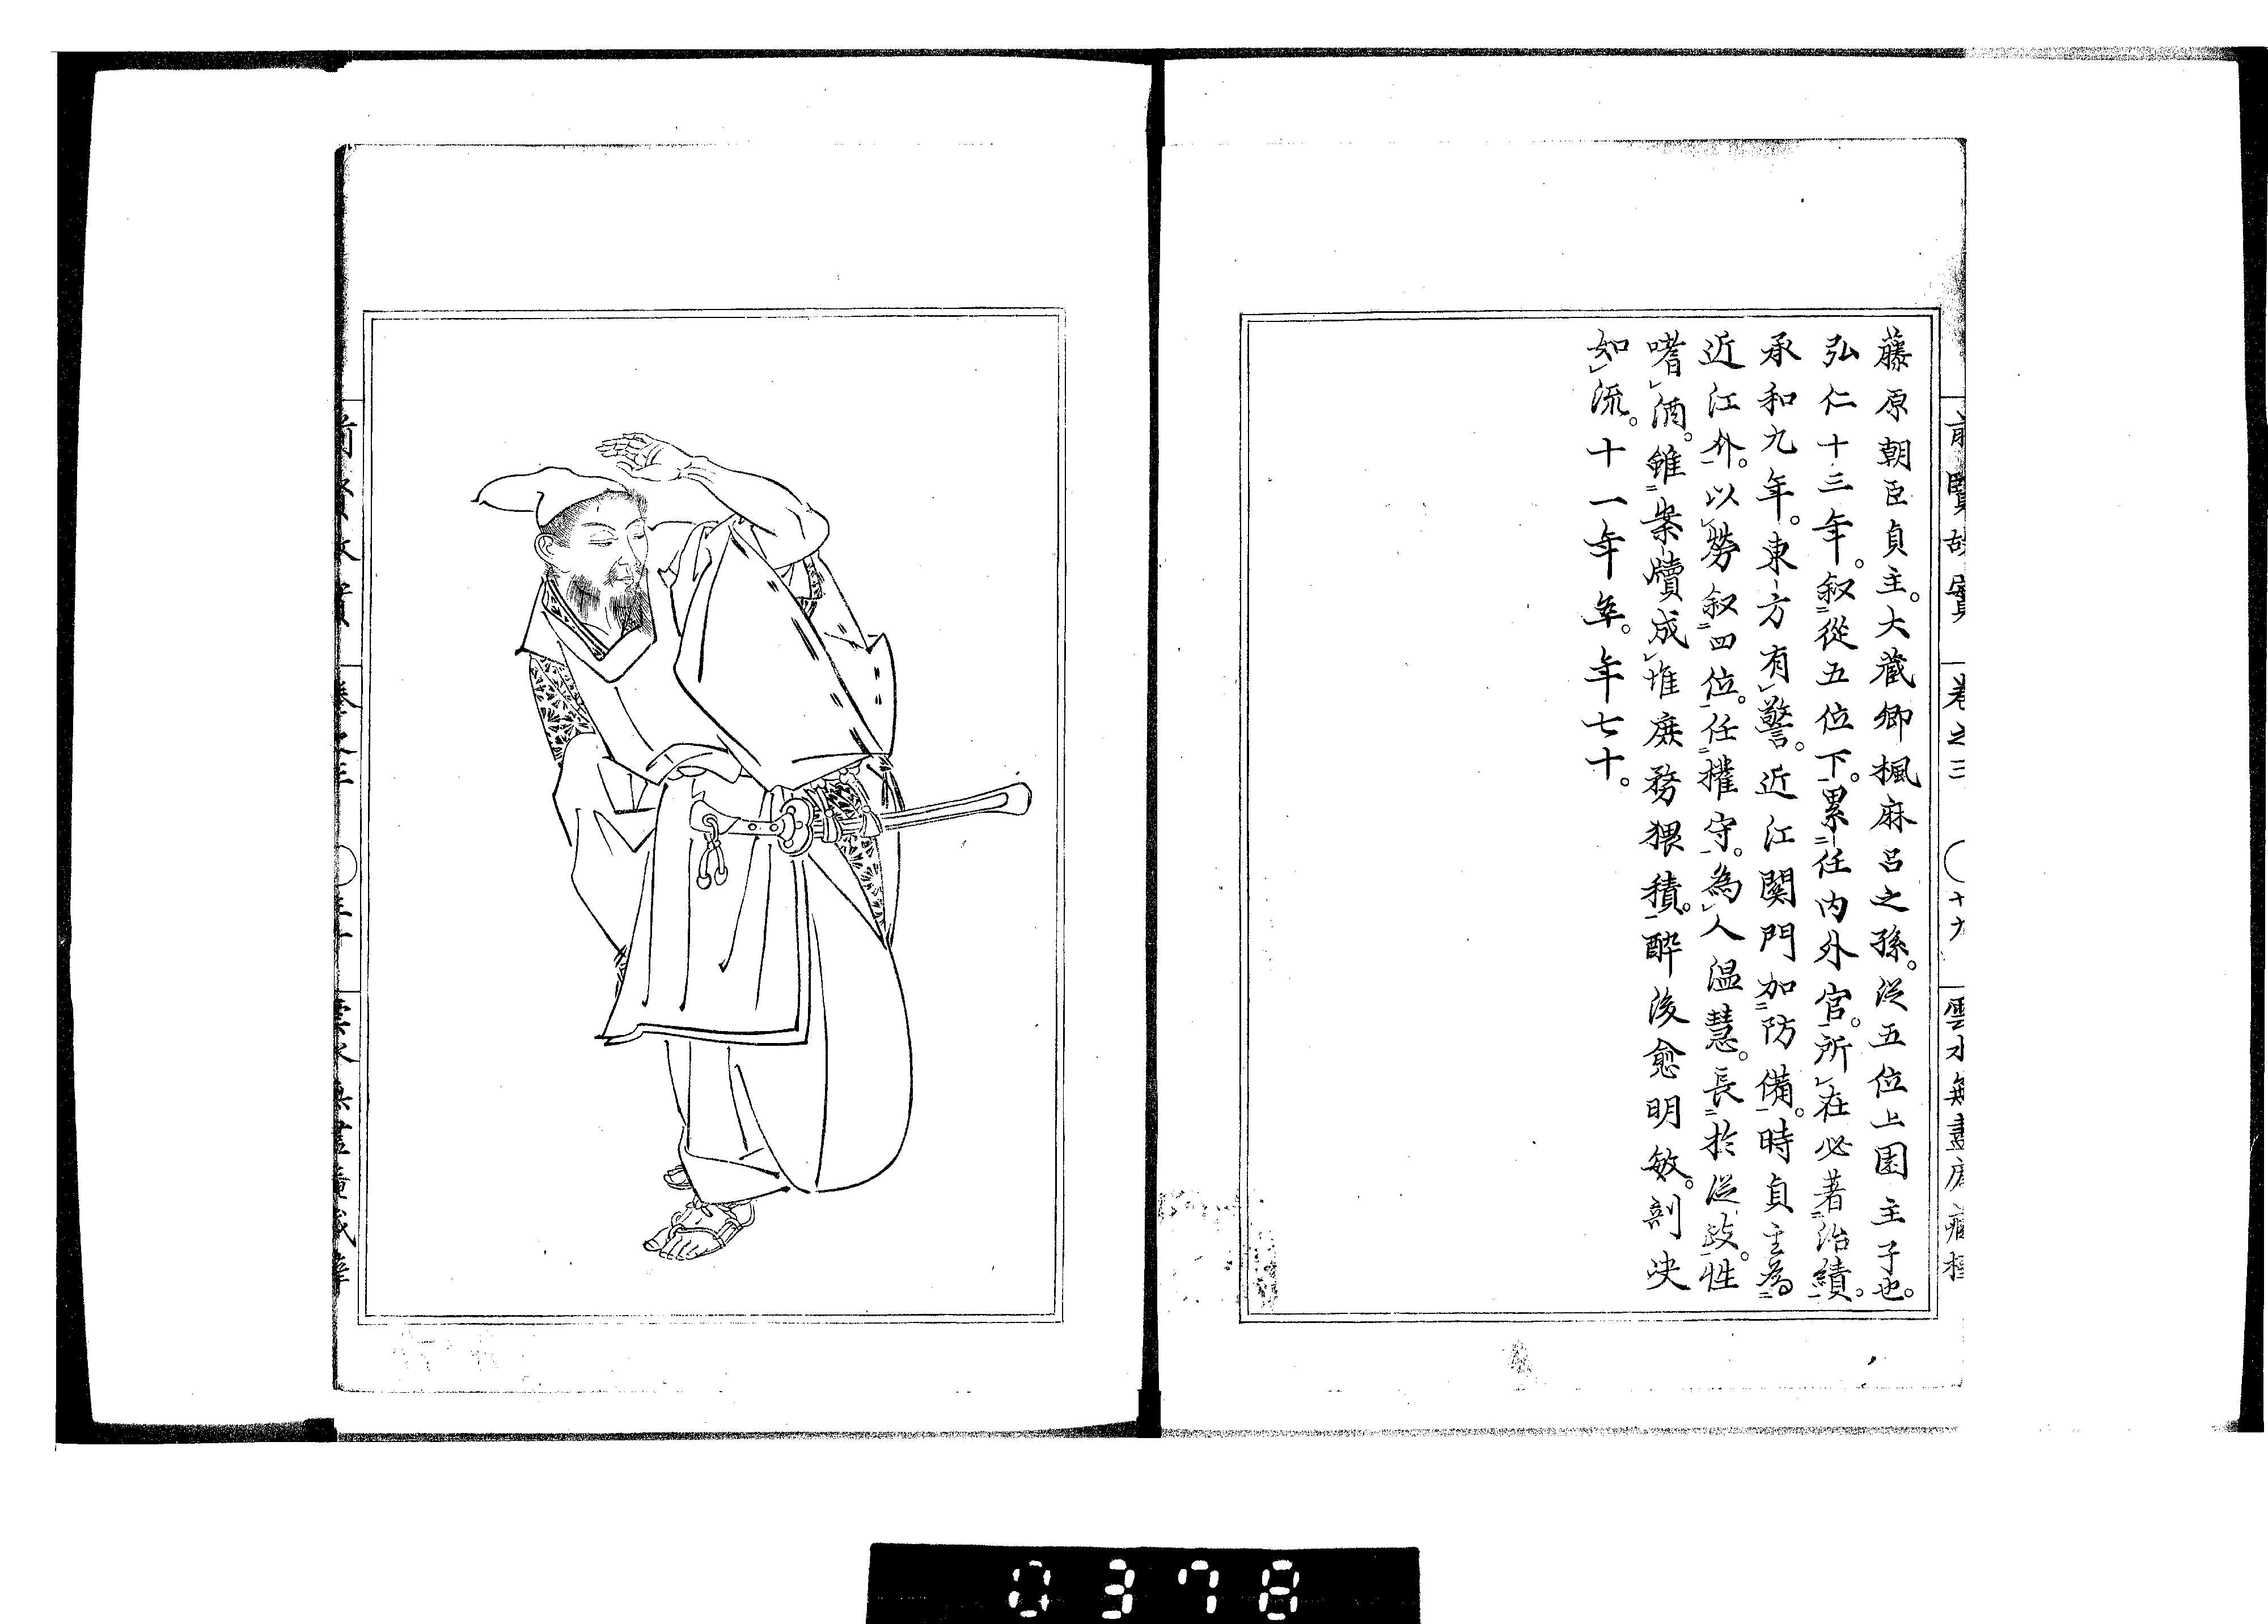 前賢故實 卷之三 十九 雲水無盡庵
藤原朝臣貞主。大藏卿楓麻呂之孫。從五位上園主子也。
弘仁十三年。叙從五位下。累任内外官。所在必著治績。
承和九年。東方有警。近江關門加防備。時貞主為
近江介。以勞叙四位。任權守。為人溫慧。長於從政。性
嗜酒。雖案牘成堆庶務猥積。醉後愈明敏。剖决
如流。十一年卒。年七十。
0378